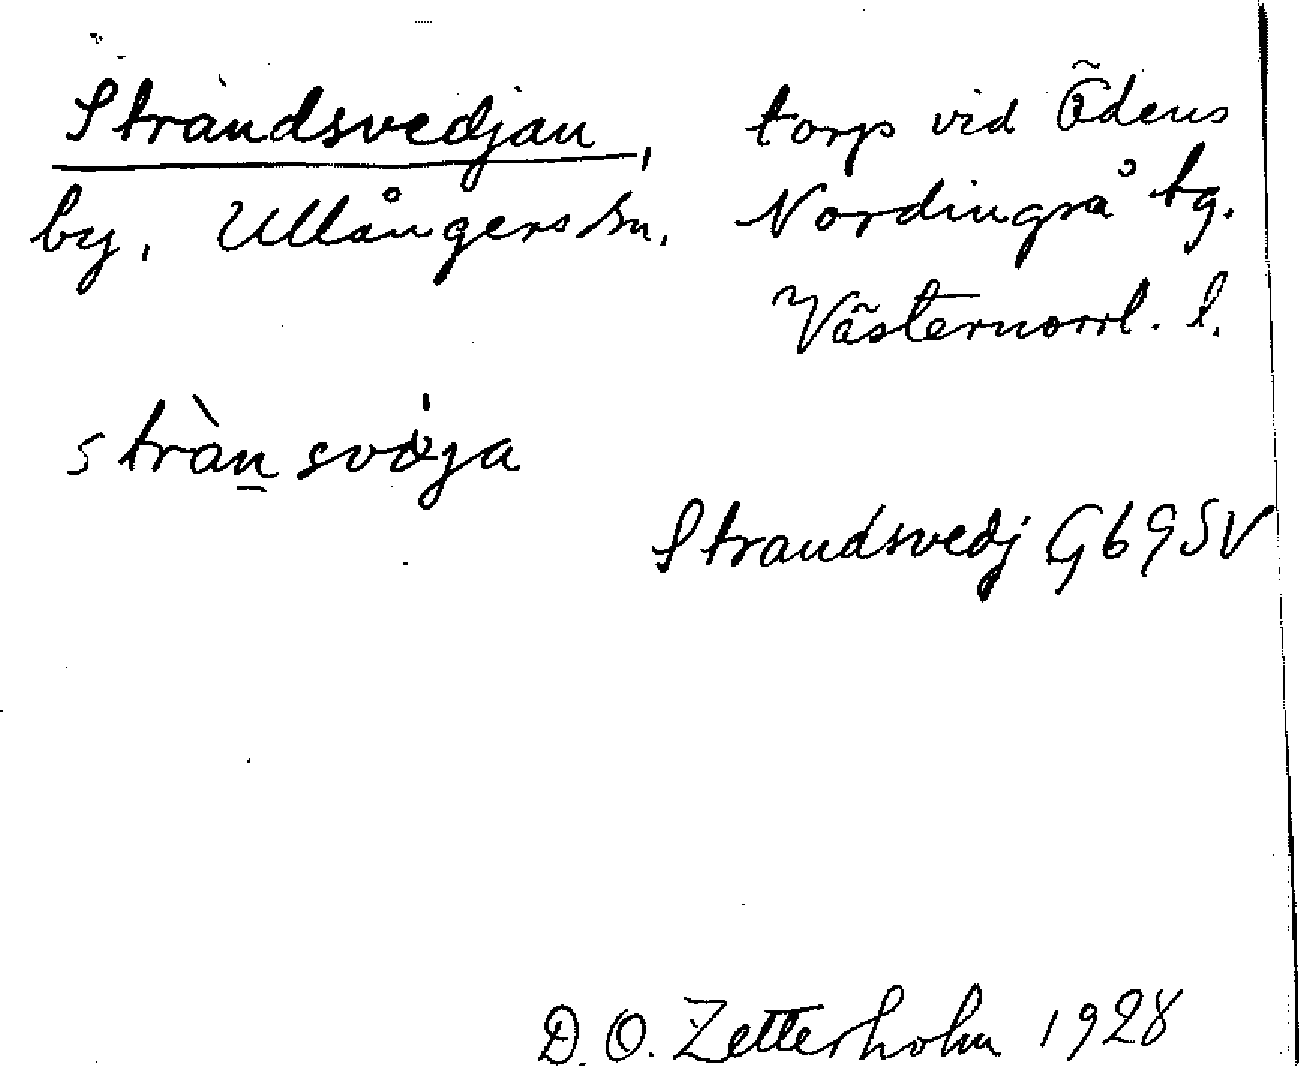 Strandsvedjan, torp vid Ödens
by, Ullångers sn. Nordingrå tg.
Västernorrl. l.
stràn svè̍ja
Strandsvedj G69SV
D. O. Zetterholm 1928